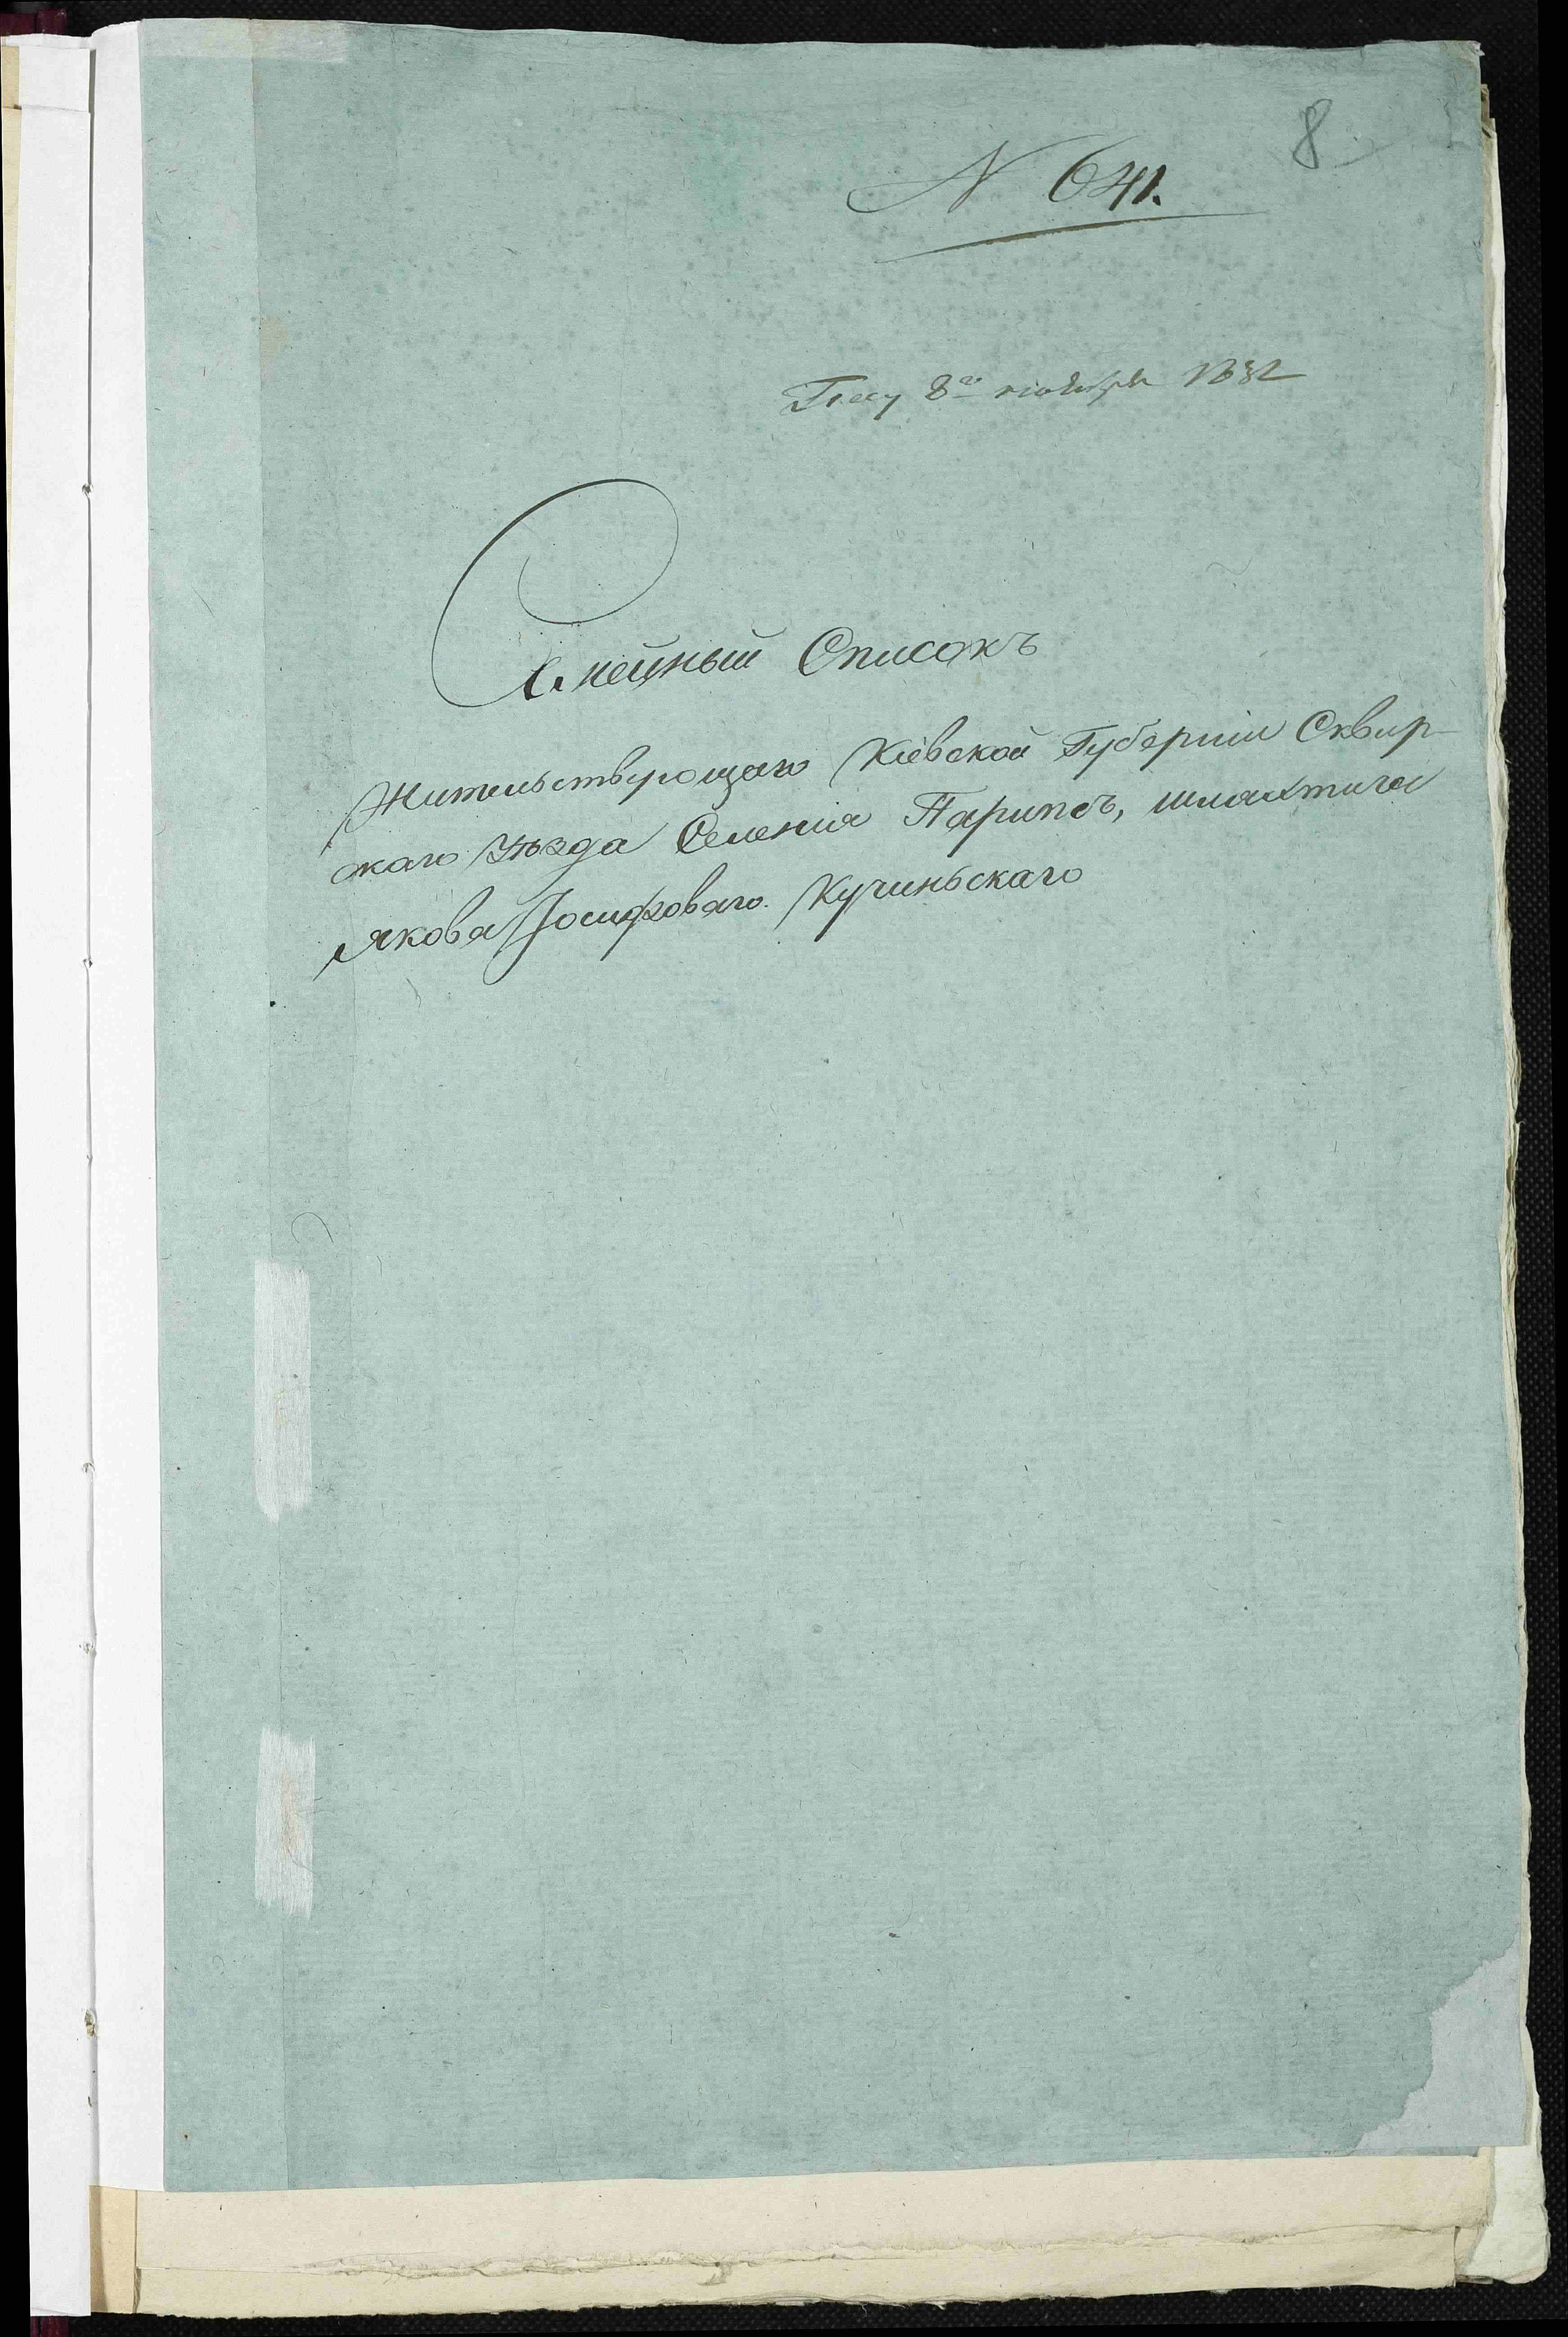 8
N 641.
8го ноября 1832
Семейный Списокъ
Жительствующаго Кіевской Губерніи Сквир-
скаго Уѣзда Селенія Парипсъ, шляхтича
Якова Іосифоваго Кучиньскаго